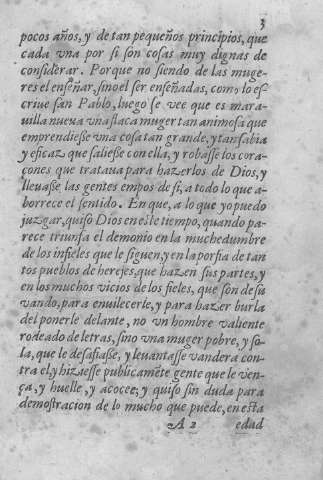 3
pocos años, y de tan pequeños principios, que
cada vna por si son cosas muy dignas de
considerar. Porque no siendo de las muge-
res el enseñar, sino el ser enseñadas, como lo es-
criue san Pablo, luego se vee que es mara-
uilla nueua vna flaca muger tan animosa que
emprendiesse vna cosa tan grande, y tan sabia
y eficaz que saliesse con ella, y robasse los cora-
çones que trataua para hazerlos de Dios, y
lleuasse las gentes empos de si, a todo lo que a-
borrece el sentido. En que, a lo que yo puedo
juzgar, quiso Dios en este tiempo, quando pa-
rece triunfa el demonio en la muchedumbre
de los infieles que le siguen, y en la porfia de tan
tos pueblos de herejes, que hazen sus partes, y
en los muchos vicios de los fieles, que son de su
vando, para enuilecerle, y para hazer burla
del ponerle delante, no vn hombre valiente
rodeado de letras, sino vna muger pobre, y so-
la, que le desafiasse, y leuantasse vandera con-
tra el, y hiziesse publicamẽte gente que le ven-
ça, y huelle, y acocee; y quiso sin duda para
demostracion de lo mucho que puede, en esta
A 2 edad